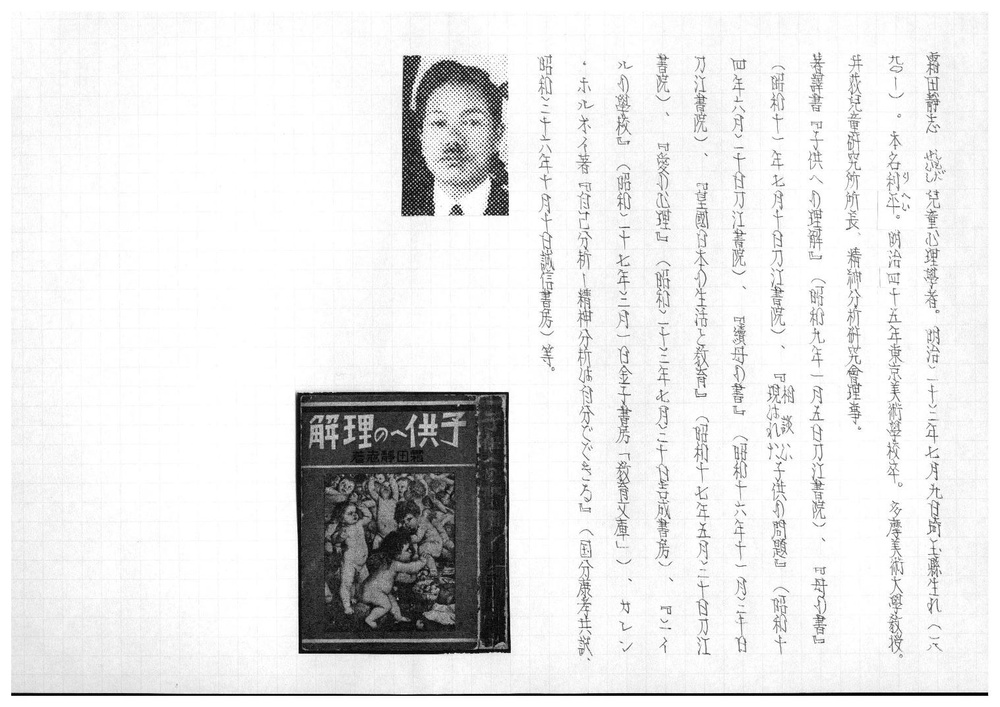 霜田靜志 しもだしづし 兒童心理學者。明治二十三年七月九日埼玉縣生れ（一八
九〇ー）。本名利平。明治四十五年東京美術學校卒。多摩美術大學敎授。
りへい
井荻兒童硏究所所長、精神分析硏究會理事。
著譯書『子供への理解』（昭和九年一月五日刀江書院）、『母の書』
（昭和十一年七月十日刀江書院）、『相談に現はれた子供の問題』（昭和十
四年六月二十日刀江書院）、『續母の書』（昭和十六年十一月三十日
刀江書院）、『皇國日本の生活と敎育』（昭和十七年五月三十日刀江
書院）、『愛の心理』（昭和二十三年七月三十日吉成書房）、『ニイ
ルの學校』（昭和二十七年三月一日金子書房「敎育文庫」）、カレン
・ホルネイ著『自己分析ー精神分析は自分でできる』（国分康孝共訳、
昭和三十六年十月十日誠信書房）等。
子供への理解
霜田靜志著